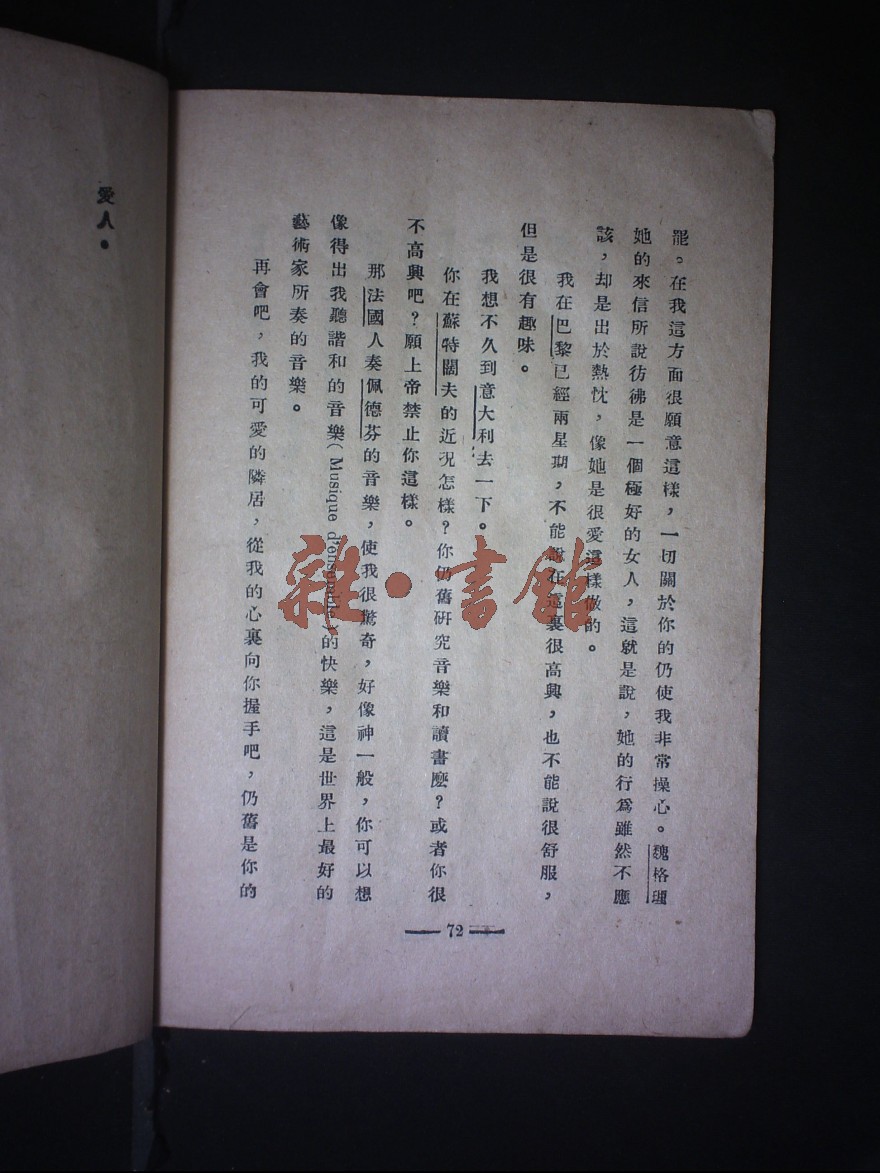 罷。在我這方面很願意這樣，一切關於你的仍使我非常操心。魏格理
她的來信所說彷彿是一個極好的女人，這就是說，她的行爲雖然不應
該，却是出於熱忱，像她是很愛這樣做的。
我在巴黎已經兩星期，不能說在這裏很高興，也不能說很舒服，
但是很有趣味。
我想不久到意大利去一下。
你在蘇特闊夫的近况怎樣？你仍舊研究音樂和讀書麽？或者你很
不高興吧？願上帝禁止你這樣。
那法國人奏佩德芬的音樂，使我很驚奇，好像神一般，你可以想
像得出我聽諧和的音樂(Musique d'ensemble)的快樂，這是世界上最好的
藝術家所奏的音樂。
再會吧，我的可愛的隣居，從我的心裏向你握手吧，仍舊是你的
72
愛人。
雜·書館